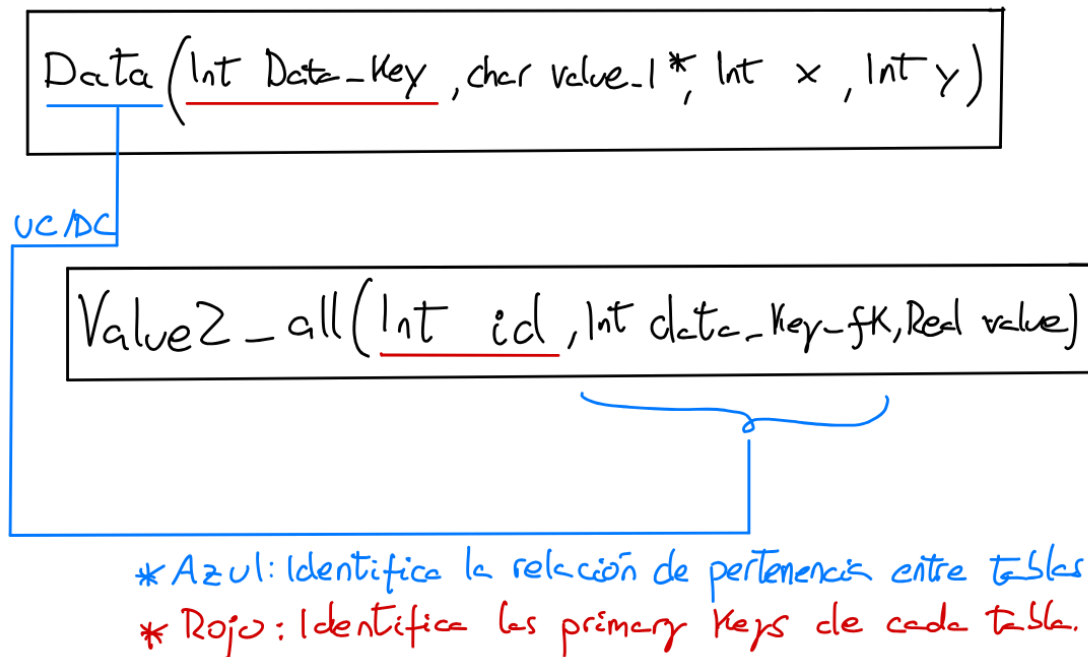 Data (Int Data_Key, char value_1*, Int x, Int y)
UC/DC
Value2_all (Int id, Int data_Key_fK, Real value)
* Azul: Identifica la relación de pertenencia entre tablas
* Rojo: Identifica las primary Keys de cada tabla.